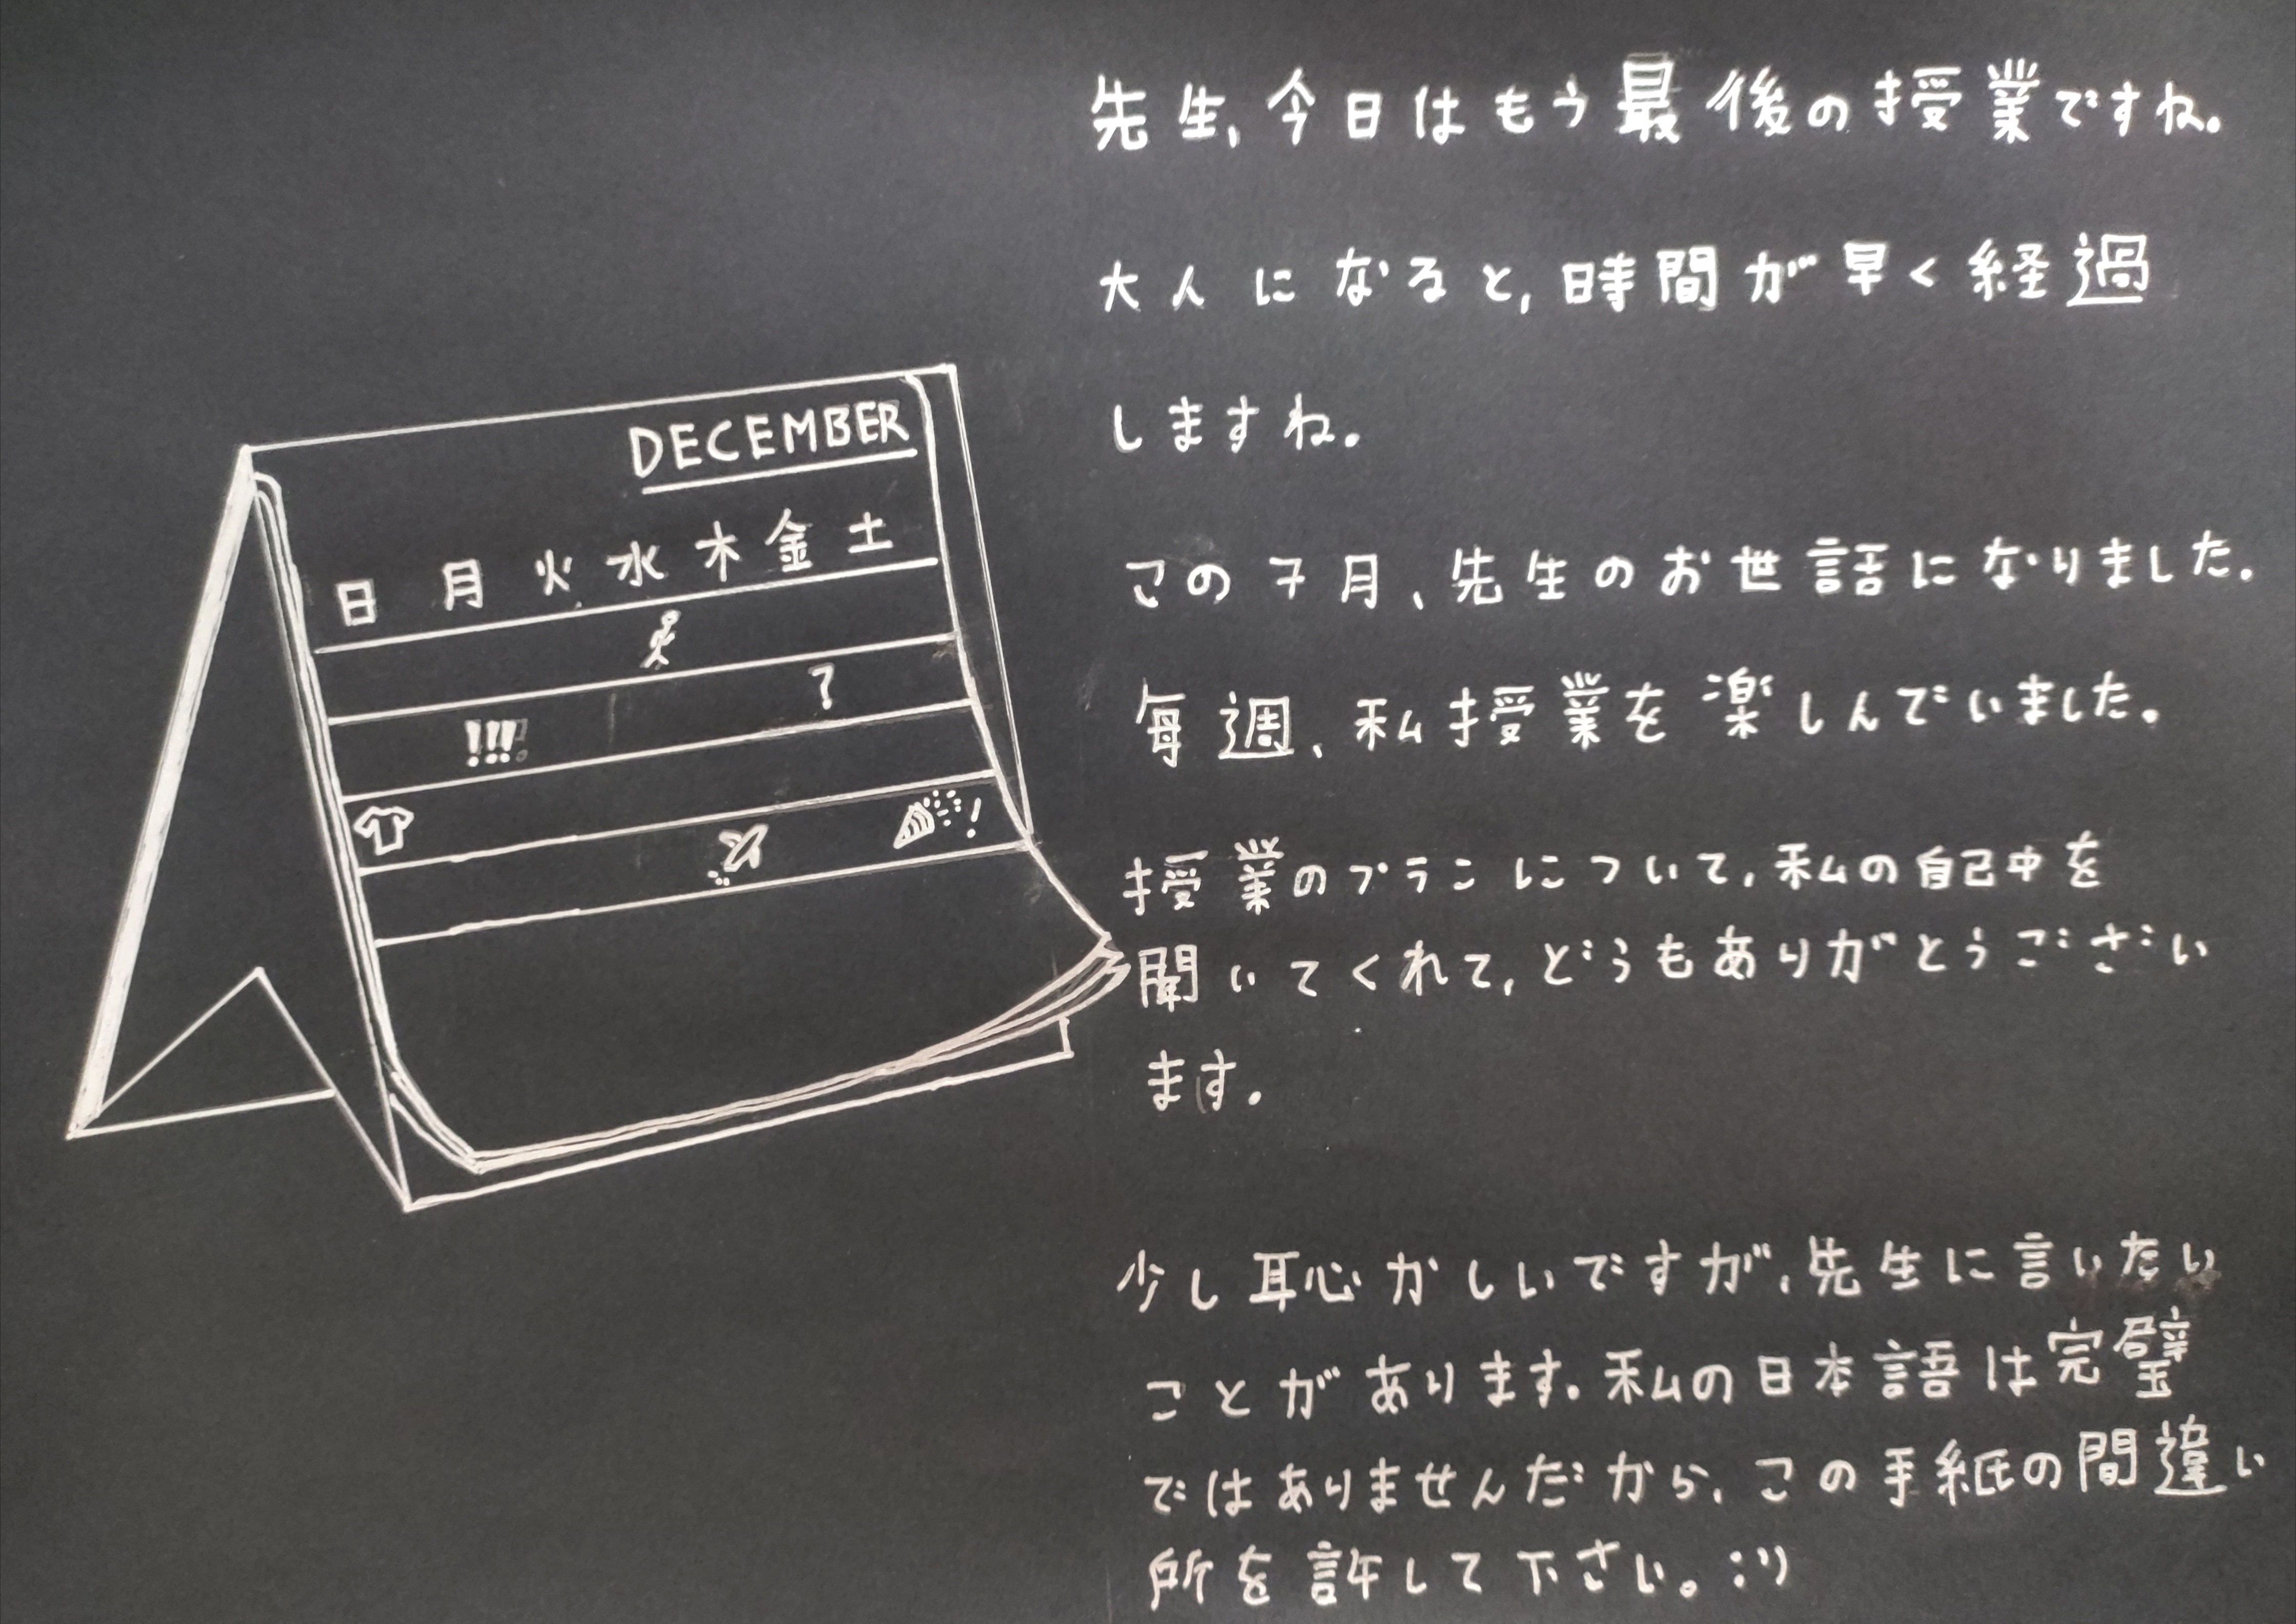 先生、今日はもう最後の授業ですね。
大人になると、時間が早く経過
しますね。
この7月、先生のお世話になりました。
毎週、私授業を楽しんでいました。
授業のプランについて、私の自己中を
聞いてくれて、どうもありがとうござい
ます。
少し恥かしいですが、先生に言いたい
ことがあります。私の日本語は完璧
ではありませんだから、この手紙の間違い
所を許して下さい。:))
DECEMBER
日 月 火 水 木 金 土
?
!!!
!